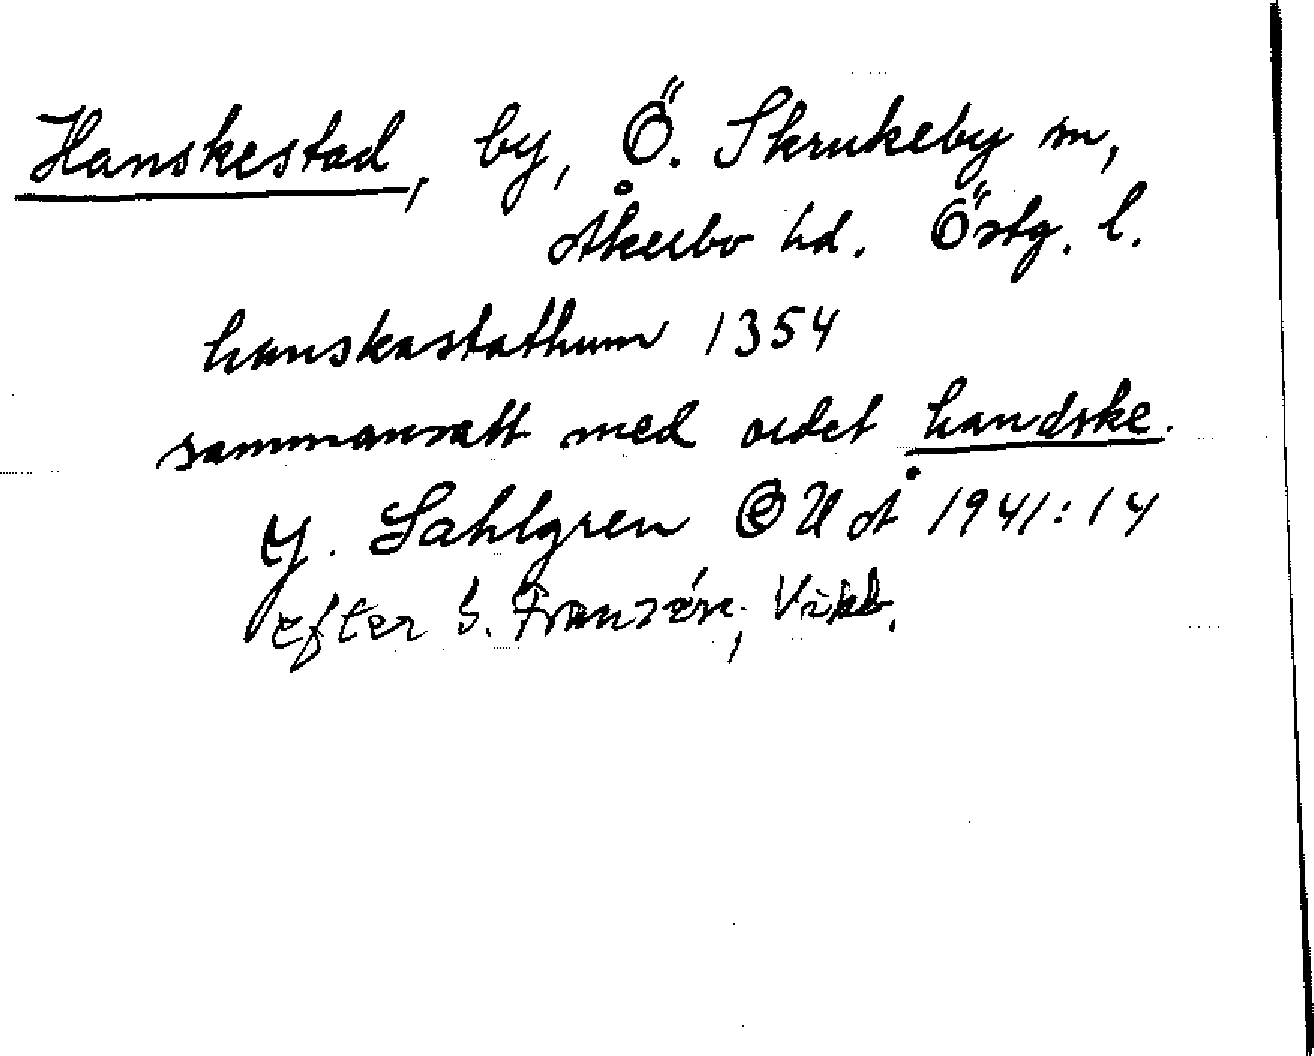 Hanskestad, by, Ö. Skrukeby sn,
Åkerbo hd. Östg. l.
hanskastathum 1354
sammansatt med ordet handske.
J. Sahlgren OUÅ 1941:14
efter S. Fransén, Vikb.